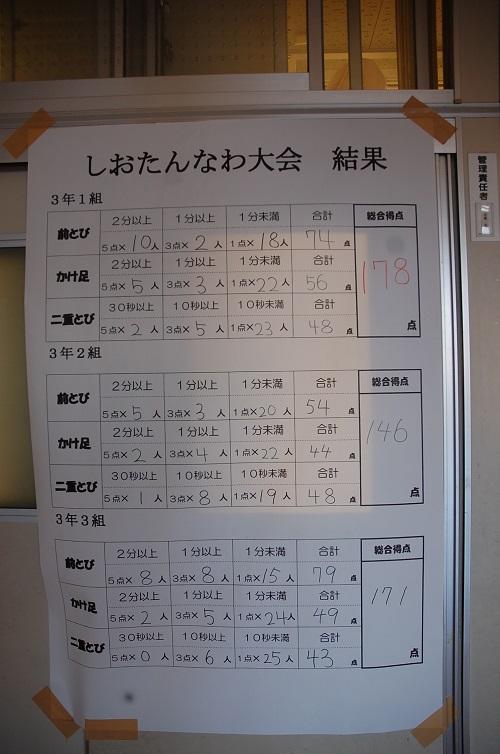 しおたんなわ大会 結果
管理責任者
3年1組
前とび 2分以上 1分以上 1分未満 合計 総合得点
5点×10人 3点×2人 1点×18人 74点
かけ足 2分以上 1分以上 1分未満 合計 178点
5点×5人 3点×3人 1点×22人 56点
二重とび 30秒以上 10秒以上 10秒未満 合計
5点×2人 3点×5人 1点×23人 48点
3年2組
前とび 2分以上 1分以上 1分未満 合計 総合得点
5点×5人 3点×3人 1点×20人 54点
かけ足 2分以上 1分以上 1分未満 合計 146点
5点×2人 3点×4人 1点×22人 44点
二重とび 30秒以上 10秒以上 10秒未満 合計
5点×1人 3点×8人 1点×19人 48点
3年3組
前とび 2分以上 1分以上 1分未満 合計 総合得点
5点×8人 3点×8人 1点×15人 79点
かけ足 2分以上 1分以上 1分未満 合計 171点
5点×2人 3点×5人 1点×24人 49点
二重とび 30秒以上 10秒以上 10秒未満 合計
5点×0人 3点×6人 1点×25人 43点